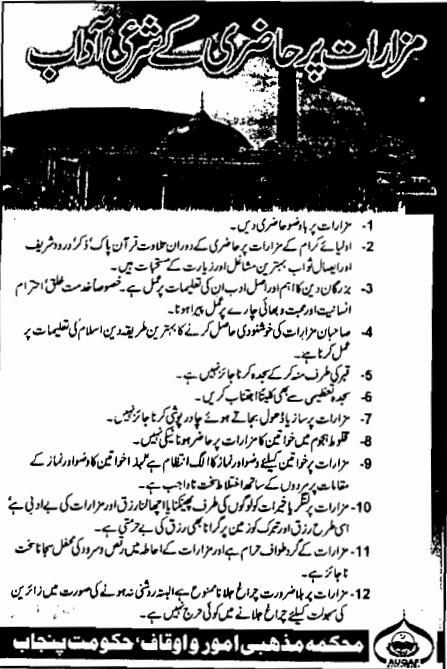 مزارات پر حاضری کے شرعی آداب
1- مزارات پر باوضو حاضری دیں۔
2- اولیائے کرام کے مزارات پر حاضری کے دوران تلاوت قرآن پاک' ذکر' درود شریف
اور ایصال ثواب بہترین مشاغل اور زیارت کے مستحبات ہیں۔
3- بزرگان دین کا اہم اور اصل ادب ان کی تعلیمات پر عمل ہے۔ خصوصاً خدمت خلق' احترام
انسانیت اور محبت و بھائی چارے پر عمل پیرا ہونا۔
4- صاحبان مزارات کی خوشنودی حاصل کرنے کا بہترین طریقہ دین اسلام کی تعلیمات پر
عمل کرنا ہے۔
5- قبر کی طرف منہ کر کے سجدہ کرنا جائز نہیں ہے۔
6- سجدہ تعظیمی سے بھی کلیتاً اجتناب کریں۔
7- مزارات پر ساز یا ڈھول بجاتے ہوئے چادر پوشی کرنا جائز نہیں۔
8- مخلوط ہجوم میں خواتین کا مزارات پر حاضر ہونا نیکی نہیں۔
9- مزارات پر خواتین کیلئے وضو اور نماز کا الگ انتظام ہے لہذا خواتین کا وضو اور نماز کے
مقامات پر مردوں کے ساتھ اختلاط سخت ناواجب ہے۔
10- مزارات پر لنگر یا خیرات کو لوگوں کی طرف پھینکنا یا اچھالنا رزق اور مزارات کی بے ادبی ہے'
اسی طرح رزق اور تبرک کو زمین پر گرانا بھی رزق کی بے حرمتی ہے۔
11- مزارات کے گرد طواف حرام ہے اور مزارات کے احاطہ میں رقص و سرود کی محفل سجانا سخت
ناجائز ہے۔
12- مزارات پر بلاضرورت چراغ جلانا ممنوع ہے البتہ روشنی نہ ہونے کی صورت میں زائرین
کی سہولت کیلئے چراغ جلانے میں کوئی حرج نہیں ہے۔
محکمہ مذہبی امور و اوقاف' حکومت پنجاب
AUQAF